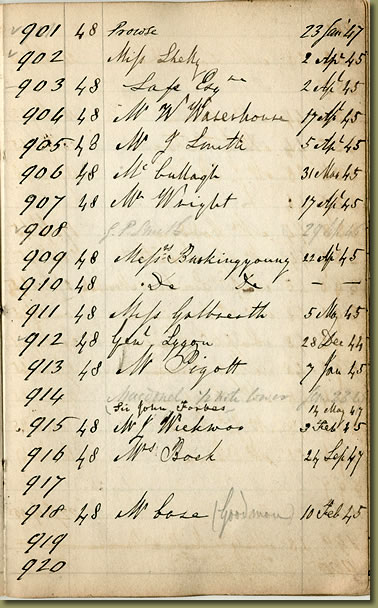 901 48 Prowse 23 Jan 47
902 Miss Shelly 2 Apl 45
903 48 Esqre 2 Apl 45
904 48 Mr W Waterhouse 17 Apl 45
905 48 Mr J Smith 5 Apl 45
906 48 McCullagh 31 Mar 45
907 48 Mr Wright 17 Apl 45
908
909 48 Messrs 22 Apl 45
910 48 Do Do — —
911 48 Miss Galbraith 5 May 45
912 48 Genl Lygon 28 Dec 44
913 48 Mr Pigott 7 Jan 45
914
Sir John Forbes 14 May 47
915 48 Mr 3 Feb 45
916 48 Mrs Bock 24 Sep 47
917
918 48 Mr (Goodman) 10 Feb 45
919
920